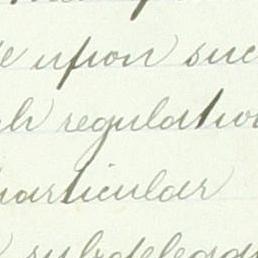 upon suc
ch regulatio
particular
subdelega